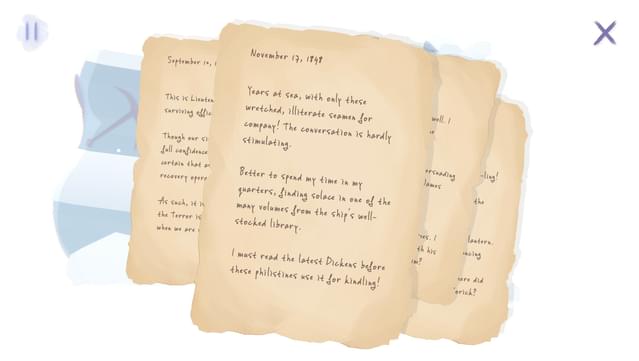 September 10, 1
This is Lieuten
surviving offic
Though our si
full confidenc
certain that a
recovery oper
As such, it is
the Terror is
when we are
November 17, 1848
Years at sea, with only these
wretched, illiterate seamen for
company! The conversation is hardly
stimulating.
Better to spend my time in my
quarters, finding solace in one of the
many volumes from the ship's well-
stocked library.
I must read the latest Dickens before
these philistines use it for kindling!
well. I
ersuading
lames
oes. I
th his
m?
ling!
the
lantern.
ncing
ere did
erick?